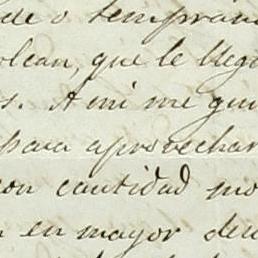 de o temprano
olean, que le llega
s. A mi me gus
para aprovechar
con cantidad mo
en mayor deu